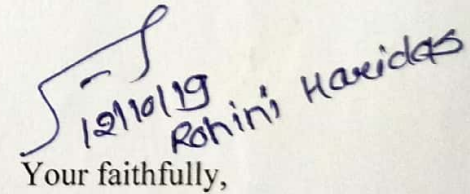 12/10/19
Rohini Haridas
Your faithfully,